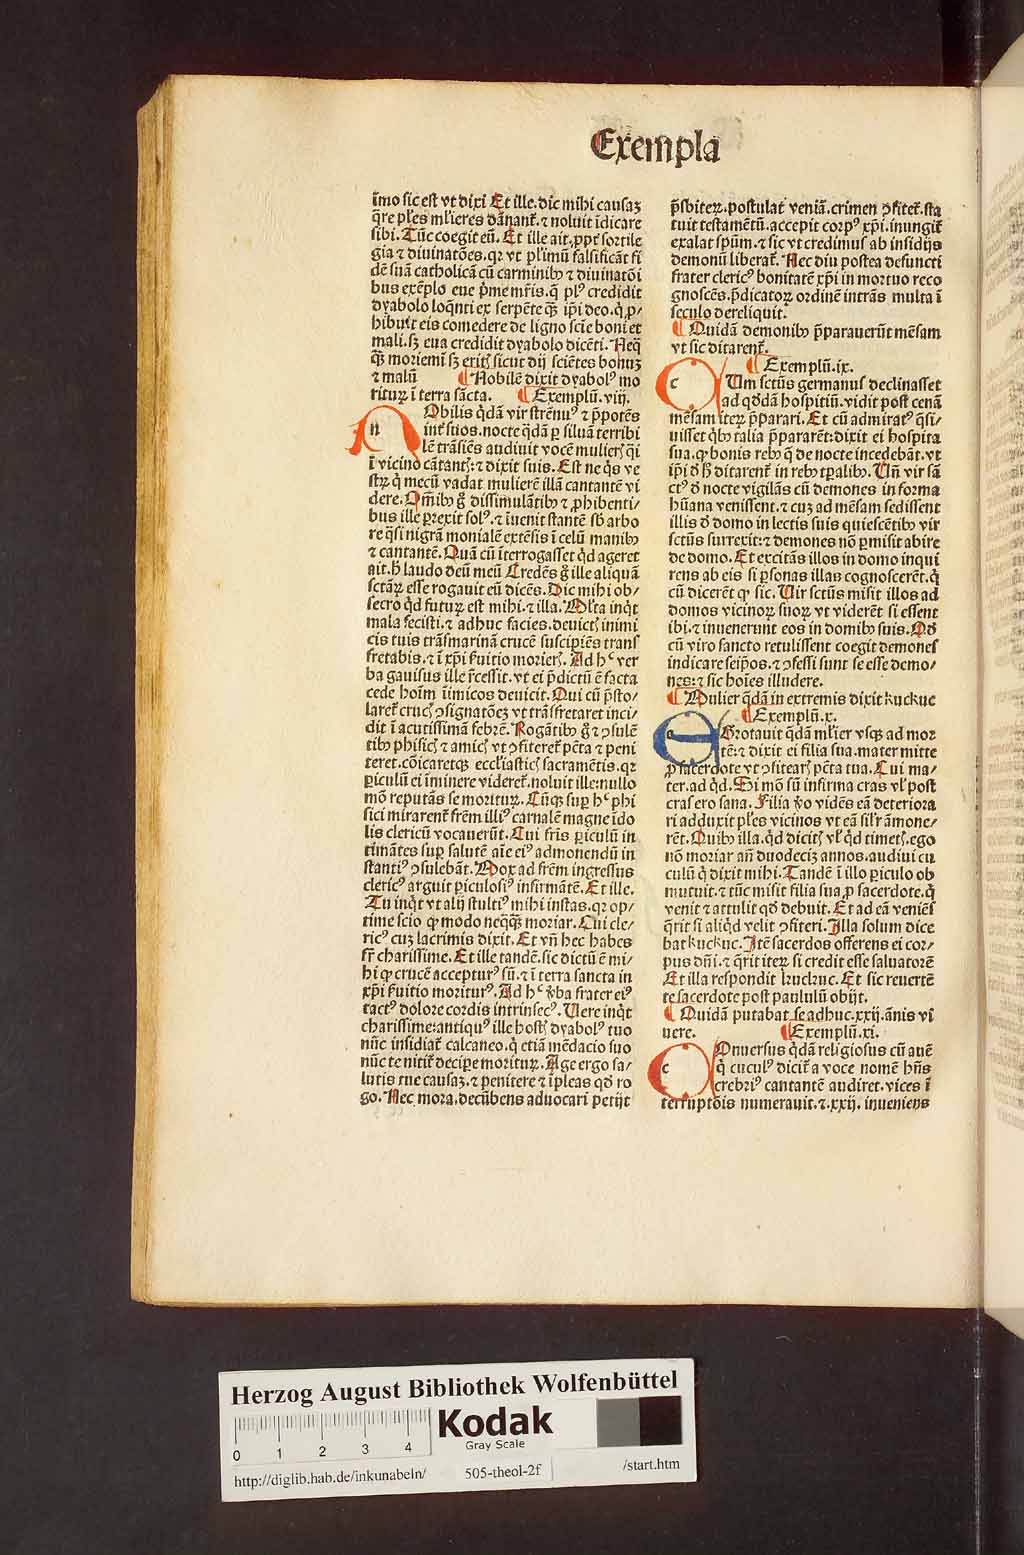 Exempla
īmo sic est vt dixi Et ille. dic mihi causaꝫ
q̄re pl̄es ml̄ieres dānant̄. ⁊ noluit īdicare
sibi. Tūc coegit eū. Et ille ait. ꝓpt̄ sortile
gia ⁊ diuinatōes. qꝛ vt pl̄imū falsificāt fi
dē suā catholicā cū carminibꝰ ⁊ diuinatōi
bus exēplo eue p̄me mr̄is. q̄ plꝰ credidit
dyabolo loq̄nti ex serpēte qꝫ ip̄i deo. q̄ ꝓ⸗
hibuit eis comedere de ligno scīe boni et
mali. sꝫ eua credidit dyabolo dicēti. Neq̄
qꝫ moriemī sꝫ eritꝭ sicut dij sciētes bonuꝫ
⁊ malū ¶ Nobilē dixit dyabolꝰ mo
riturꝝ ī terra sācta. ¶ Exemplū. viij.
n Obilis q̄dā vir strēnuꝰ ⁊ p̄potēs
int̄ suos. nocte q̄dā ꝑ siluā terribi
lē trāsiēs audiuit vocē mulierꝭ q̄i
ī vicino cātantꝭ: ⁊ dixit suis. Est ne q̄s ve
stꝝ q̄ mecū vadat mulierē illā cantantē vi
dere. Om̄ibꝰ g̊ dissimulātibꝰ ⁊ ꝓhibenti⸗
bus ille ꝑrexit solꝰ. ⁊ īuenit stantē sb̄ arbo
re q̄si nigrā monialē extēsis ī celū manibꝰ
⁊ cantantē. Quā cū īterrogasset q̄d ageret
ait. h̄ laudo deū meū Credēs g̊ ille aliquā
sctāꝝ esse rogauit eū dicēs. Dic mihi ob⸗
secro q̄d futurꝝ est mihi. ⁊ illa. Ml̄ta inq̄t
mala fecisti. ⁊ adhuc facies. deuictꝭ inimi
cis tuis trāsmarinā crucē suscipiēs trans
fretabis. ⁊ ī xp̄i ẜuitio morierꝭ. Ad hᶜ ver
ba gauisus ille r̄cessit. vt ei p̄dictū ē facta
cede hoīm īimicos deuicit. Qui cū p̄sto⸗
laret̄ crucꝭ ꝯsignatōeꝫ vt trāsfretaret inci⸗
dit ī acutissimā febrē. Rogātibꝰ g̊ ⁊ ꝯsulē
tibꝰ phisicꝭ ⁊ amicꝭ vt ꝯfiteret̄ pctā ⁊ peni
teret. cōicaretqꝫ eccl̄iasticꝭ sacramētis. qꝛ
ꝑiculū ei īminere videret̄. noluit ille: nullo
mō reputās se morituꝝ. Cūqꝫ suꝑ hᶜ phi
sici mirarent̄ frēm illiꝰ carnalē magne ido
lis clericū vocauerūt. Cui fr̄is ꝑiculū in
timātes suꝑ salutē aīe eiꝰ admonendū in
stantiꝰ ꝯsulebāt. Mox ad frēm ingressus
clericꝰ arguit ꝑiculosiꝰ infirmātē. Et ille.
Tu inq̄t vt alij stultiꝰ mihi instas. qꝛ op⸗
time scio ꝙ modo neq̄qꝫ moriar. Cui cle⸗
ricꝰ cuꝫ lacrimis dixit. Et vn̄ hec habes
fr̄ charissime. Et ille tandē. sic dictū ē mi⸗
hi ꝙ crucē accepturꝰ sū. ⁊ ī terra sancta in
xp̄i ẜuitio moriturꝰ. Ad hᶜ v̄ba frater eiꝰ
tactꝰ dolore cordis intrinsecꝰ. Uere inq̄t
charissime: antiquꝰ ille hostꝭ dyabolꝰ tuo
nūc insidiat̄ calcaneo. q̄ etiā mēdacio suo
nūc te nitit̄ decipe moriturꝝ. Age ergo sa⸗
lutis tue causaꝫ. ⁊ penitere ⁊ īpleas qd̄ ro
go. Nec mora. decūbens aduocari petijt
p̄sbiterꝝ. postulat veniā. crimen ꝯfitet̄. sta
tuit testamētū. accepit corpꝰ xp̄i. inungit̄
exalat spūm. ⁊ sic vt credimus ab insidijs
demonū liberat̄. Nec diu postea defuncti
frater clericꝰ bonitatē xp̄i in mortuo reco
gnoscēs. p̄dicatoꝝ ordinē intrās multa ī
seculo dereliquit.
¶ Quidā demonibꝰ p̄parauerūt mēsam
vt sic ditarent̄.
¶ Exemplū. ix.
c Um sctūs germanus declinasset
ad qd̄dā hospitiū. vidit post cenā
mēsam iteꝝ p̄parari. Et cū admiratꝰ q̄si⸗
uisset q̄bꝰ talia p̄pararēt: dixit ei hospita
sua. ꝙ bonis rebꝰ q̄ de nocte incedebāt. vt
ip̄i d̄ hꝰ ditarent̄ in rebꝰ tp̄alibꝰ. Un̄ vir sā
ctꝰ d̄ nocte vigilās cū demones in forma
hūana venissent. ⁊ cuꝫ ad mēsam sedissent
illis d̄ domo in lectis suis quiescētibꝰ vir
sctūs surrexit: ⁊ demones nō ꝑmisit abire
de domo. Et excitās illos in domo inqui
rens ab eis si ꝑsonas illas cognoscerēt. q̄
cū dicerēt ꝙ sic. Uir sctūs misit illos ad
domos vicinoꝝ suoꝝ vt viderēt si essent
ibi. ⁊ inuenerunt eos in domibꝰ suis. Qd̄
cū viro sancto retulissent coegit demones
indicare seip̄os. ⁊ ꝯfessi sunt se esse demo⸗
nes: ⁊ sic hoīes illudere.
¶ Mulier q̄dā in extremis dixit kuckuc
¶ Exemplū. x.
e Grotauit q̄dā ml̄ier vsqꝫ ad mor
tē: ⁊ dixit ei filia sua. mater mitte
ꝓ sacerdote vt ꝯfitearꝭ pctā tua. Cui ma⸗
ter. ad qd̄. Si mō sū infirma cras vl̄ post
cras ero sana. Filia v̄o vidēs eā deteriora
ri adduxit pl̄es vicinos vt eā sil̄r āmone⸗
rēt. Quibꝰ illa. q̄d dicitꝭ vl̄ q̄d timetꝭ. ego
nō moriar an̄ duodeciꝫ annos. audiui cu
culū q̄ dixit mihi. Tandē ī illo ꝑiculo ob
mutuit. ⁊ tūc misit filia sua ꝓ sacerdote. q̄
venit ⁊ attulit qd̄ debuit. Et ad eā veniēs
q̄rit si aliq̄d velit ꝯfiteri. Illa solum dice
bat kuckuc. Itē sacerdos offerens ei cor⸗
pus dn̄i. ⁊ q̄rit iteꝝ si credit esse saluatorē
Et illa respondit kuckuc. Et sic reuertē
te sacerdote post paululū obijt.
¶ Quidā putabat se adhuc. xxij. ānis vi
uere. ¶ Exemplū. xi.
c Onuersus q̄dā religiosus cū auē
q̄ cuculꝰ dicit̄ a voce nomē hn̄s
crebriꝰ cantantē audiret. vices ī
terruptōis numerauit. ⁊. xxij. inueniens
Herzog August Bibliothek Wolfenbüttel
0 1 2 3 4
Kodak
Gray Scale
http://diglib.hab.de/inkunabeln/ 505-theol-2f /start.htm